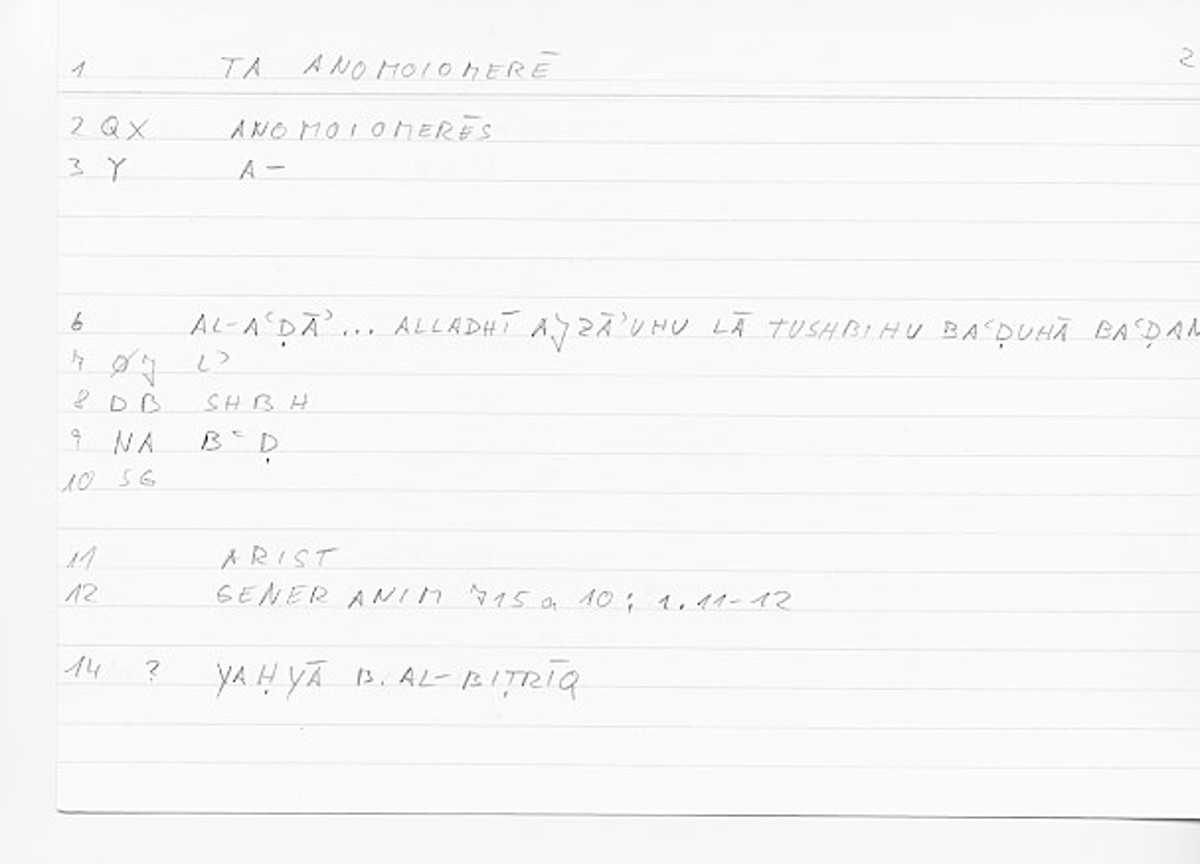 1 TA ANOMOIOMERĒ 2
2 QX ANOMOIOMERĒS
3 Y A-
6 AL-AʿḌĀʾ... ALLADHĪ AJZĀʾUHU LĀ TUSHBIHU BAʿḌUHĀ BAʿḌAN
7 ØJ Lʾ
8 DB SHBH
9 NA BʿḌ
10 SG
11 ARIST
12 GENER ANIM 715a 10; 1.11-12
14 ? YAḤYĀ B. AL-BIṬRĪQ